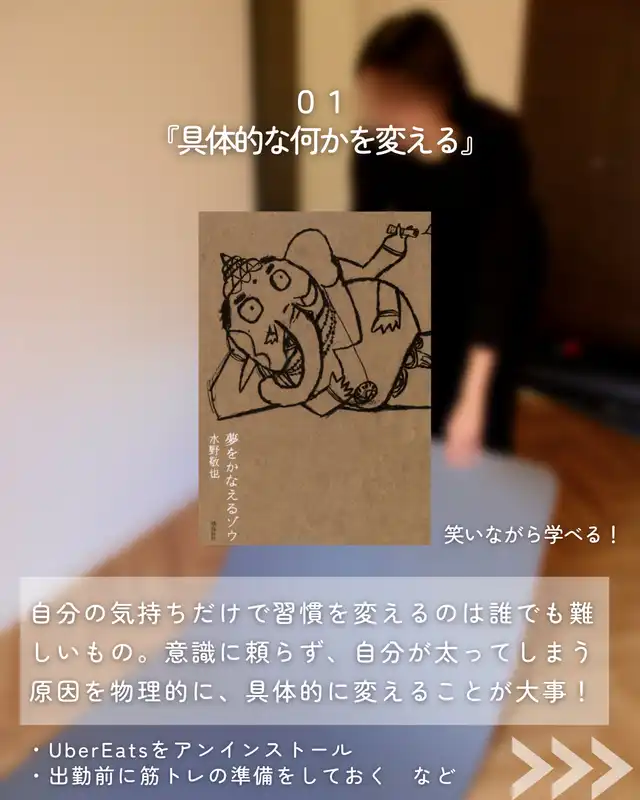 ０１
『具体的な何かを変える』
夢をかなえるゾウ
水野敬也
笑いながら学べる！
自分の気持ちだけで習慣を変えるのは誰でも難
しいもの。意識に頼らず、自分が太ってしまう
原因を物理的に、具体的に変えることが大事！
・UberEatsをアンインストール
・出勤前に筋トレの準備をしておく　など